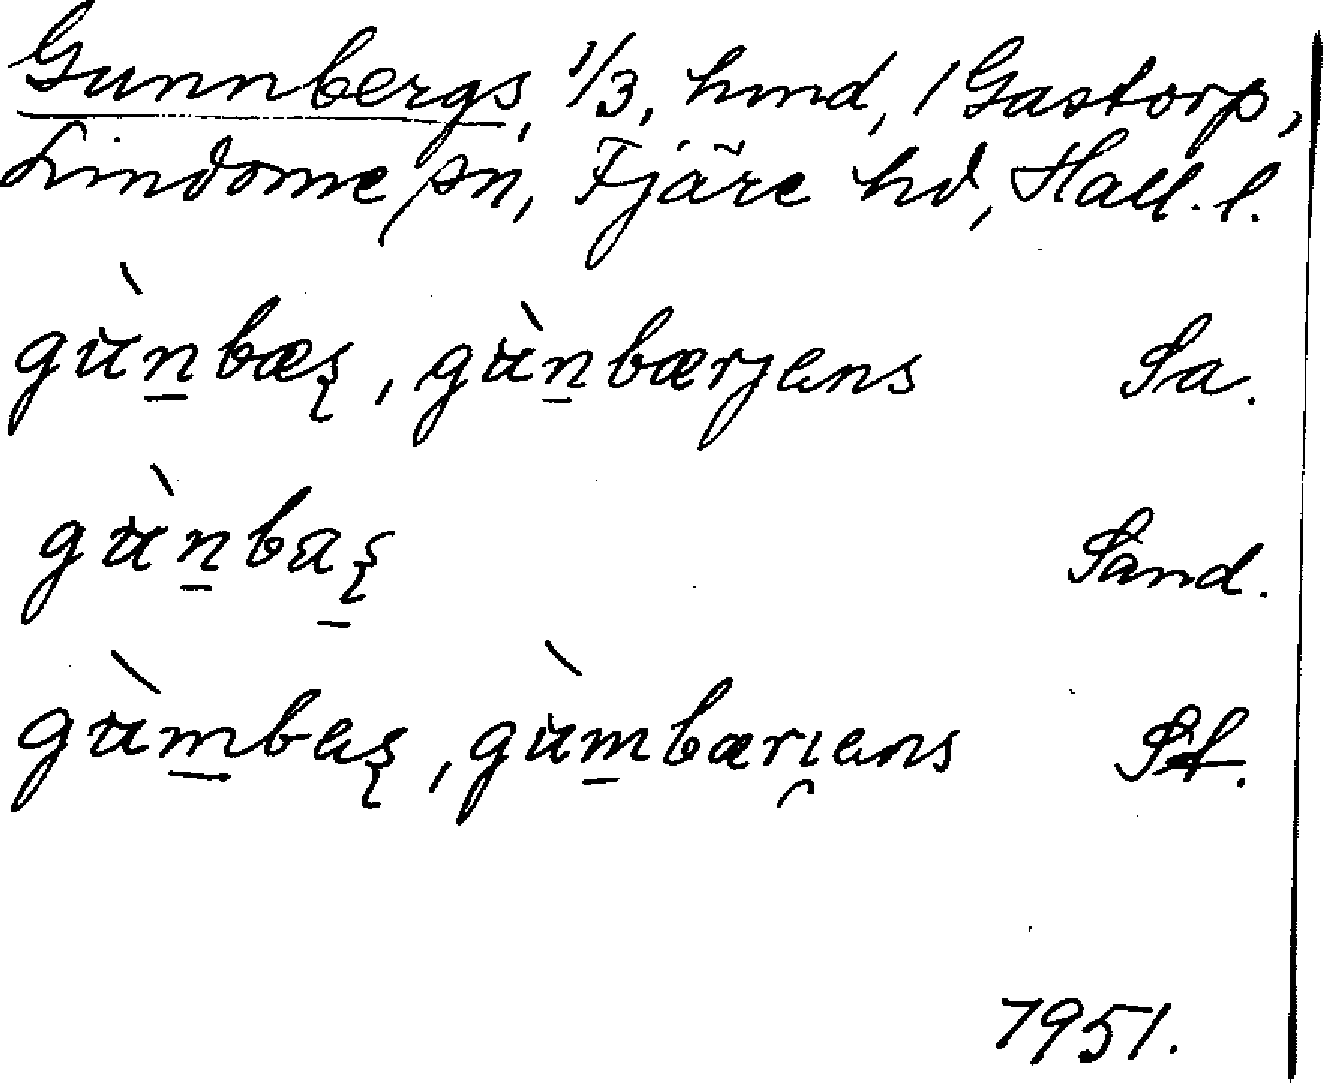 Gunnbergs, 1/3, hmd, 1 Gastorp,
Lindome sn, Fjäre hd, Hall. l.
gùn̲bæʂ, gùn̲bærjens Sa.
gùn̲baʂ̲ Sand.
gùm̲beʂ, gùm̲bæri̯ens St.
7951.